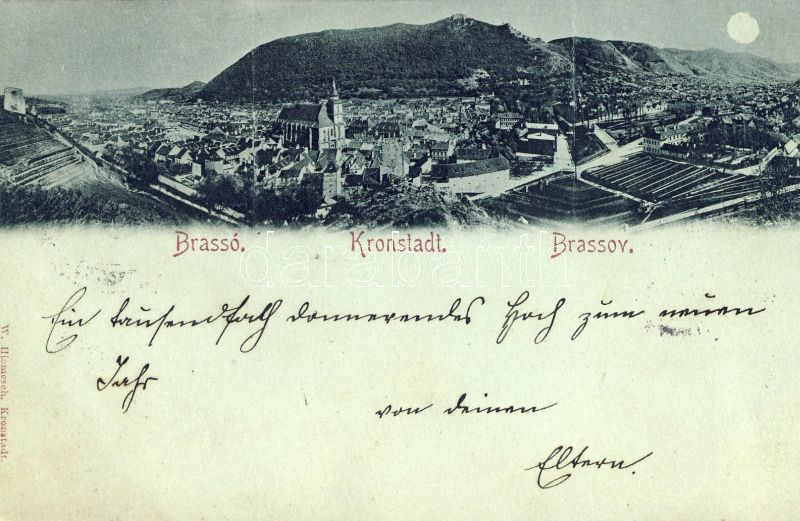 Brassó. Kronstadt. Brassov.
darabanth
Ein tausendfach donnerendes Hoch zum neuen
Jahr
von deinen
Eltern.
W. Hiemesch, Kronstadt.